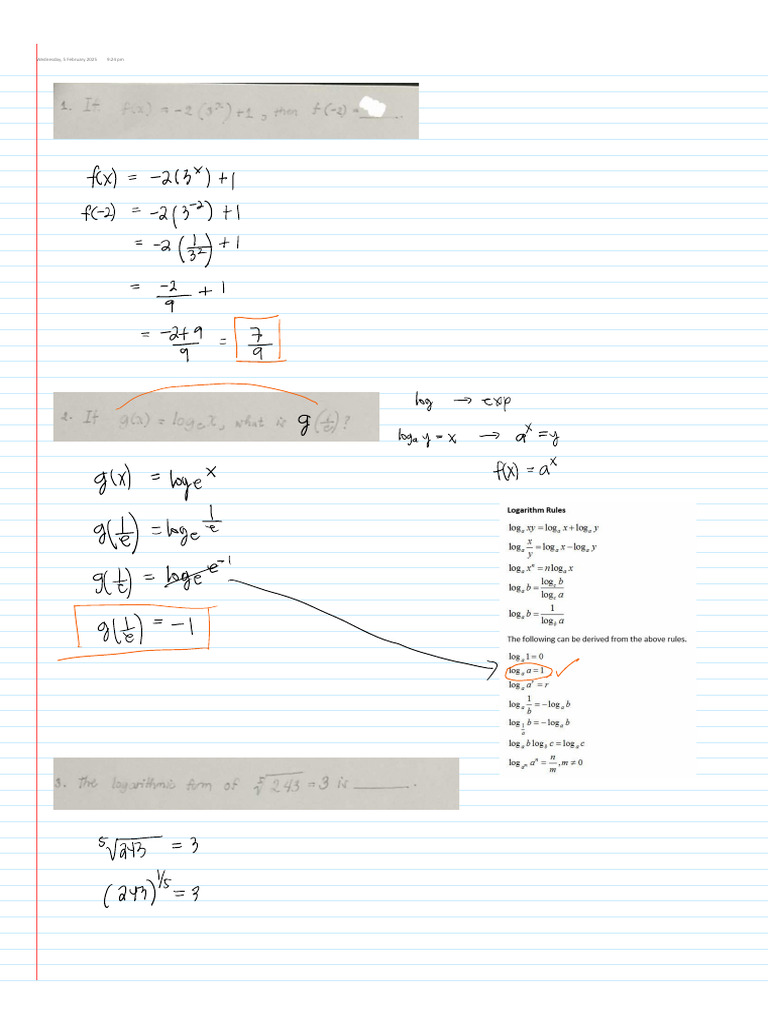 Wednesday, 5 February 2025 9:23 pm
1. If f(x) = -2(3^x)+1, then f(-2) = ____.
f(x) = -2(3^x) + 1
f(-2) = -2(3^-2) + 1
= -2(1/3^2) + 1
= -2/9 + 1
= -2+9/9 = 7/9
2. If g(x) = log_e x, what is g(1/e)?
log → exp
log_a y = x → a^x = y
f(x) = a^x
g(x) = log_e x
g(1/e) = log_e 1/e
g(1/e) = log_e e^-1
g(1/e) = -1
Logarithm Rules
log_a xy = log_a x + log_a y
log_a x/y = log_a x - log_a y
log_a x^n = n log_a x
log_a b = log_c b / log_c a
log_a b = 1 / log_b a
The following can be derived from the above rules.
log_a 1 = 0
log_a a = 1 ✓
log_a a^r = r
log_a 1/b = -log_a b
log_1/a b = -log_a b
log_a b log_b c = log_a c
log_a^m a^n = n/m, m ≠ 0
3. The logarithmic form of ⁵√243 = 3 is ____.
⁵√243 = 3
(243)^1/5 = 3